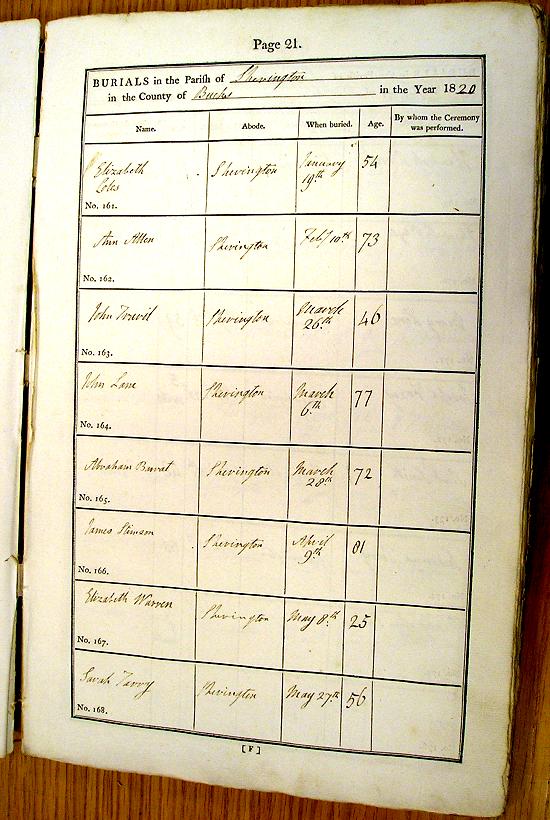 Page 21.
BURIALS in the Parish of Sherington
in the County of Bucks in the Year 1820
Name. Abode. When buried. Age. By whom the Ceremony was performed.
Elizabeth Coles Sherington January 19th 54
No. 161.
Ann Allen Sherington Feby 10th 73
No. 162.
John Sherington March 26th 46
No. 163.
John Lane Sherington March 6th 77
No. 164.
Abraham Sherington March 28th 72
No. 165.
James Stimson Sherington April 9th 81
No. 166.
Elizabeth Warren Sherington May 8th 25
No. 167.
Sarah Tarry Sherington May 27th 56
No. 168.
[F]